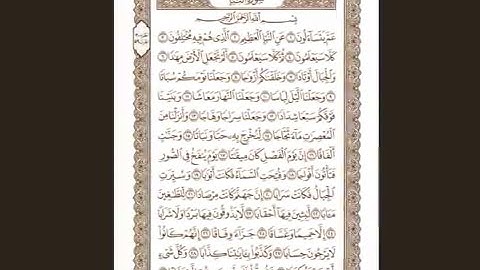 سورة النبإ
بسم الله الرحمن الرحيم
عم يتساءلون ١ عن النبإ العظيم ٢ الذي هم فيه مختلفون ٣
كلا سيعلمون ٤ ثم كلا سيعلمون ٥ ألم نجعل الأرض مهادا ٦
والجبال أوتادا ٧ وخلقناكم أزواجا ٨ وجعلنا نومكم سباتا
٩ وجعلنا الليل لباسا ١٠ وجعلنا النهار معاشا ١١ وبنينا
فوقكم سبعا شدادا ١٢ وجعلنا سراجا وهاجا ١٣ وأنزلنا من
المعصرات ماء ثجاجا ١٤ لنخرج به حبا ونباتا ١٥ وجنات
ألفافا ١٦ إن يوم الفصل كان ميقاتا ١٧ يوم ينفخ في الصور
فتأتون أفواجا ١٨ وفتحت السماء فكانت أبوابا ١٩ وسيرت
الجبال فكانت سرابا ٢٠ إن جهنم كانت مرصادا ٢١ للطاغين
مآبا ٢٢ لابثين فيها أحقابا ٢٣ لا يذوقون فيها بردا ولا شرابا
٢٤ إلا حميما وغساقا ٢٥ جزاء وفاقا ٢٦ إنهم كانوا
لا يرجون حسابا ٢٧ وكذبوا بآياتنا كذابا ٢٨ وكل شيء